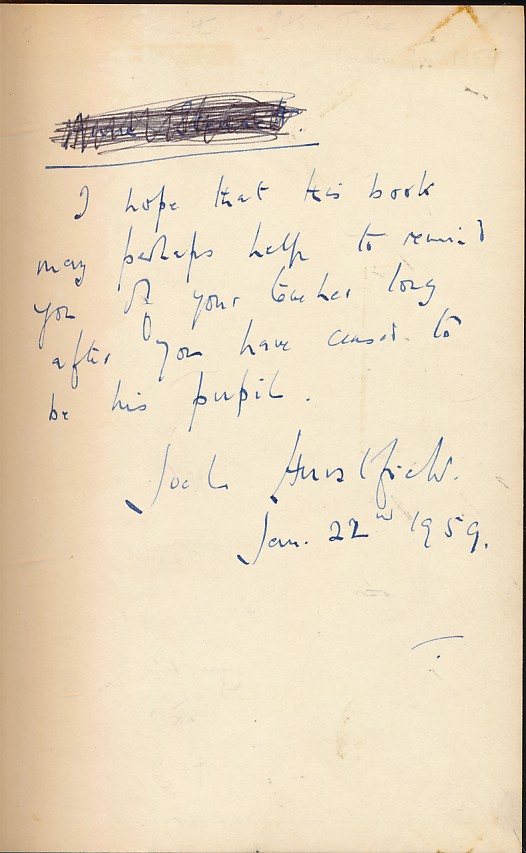 I hope that this book
may perhaps help to remind
you of your teacher long
after you have ceased to
be his pupil.
Joel Hurstfield.
Jan. 22nd 1959.